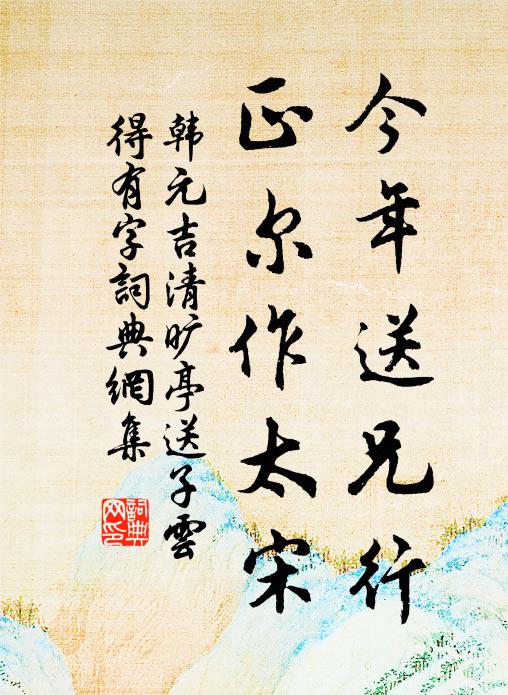 今年送兄行
正尔作太宋
韩元吉清旷亭送子雲
得有字詞典網集
詞典
网印